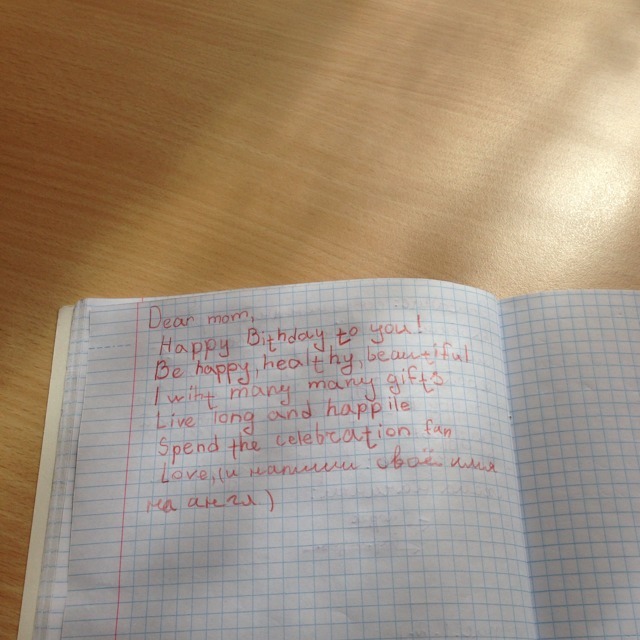 Dear mom,
Happy Bithday to you!
Be happy, healthy, beautiful
I wiht many many gifts
Live long and happile
Spend the celebration fun
Love, (и напиши своё имя
на англ)